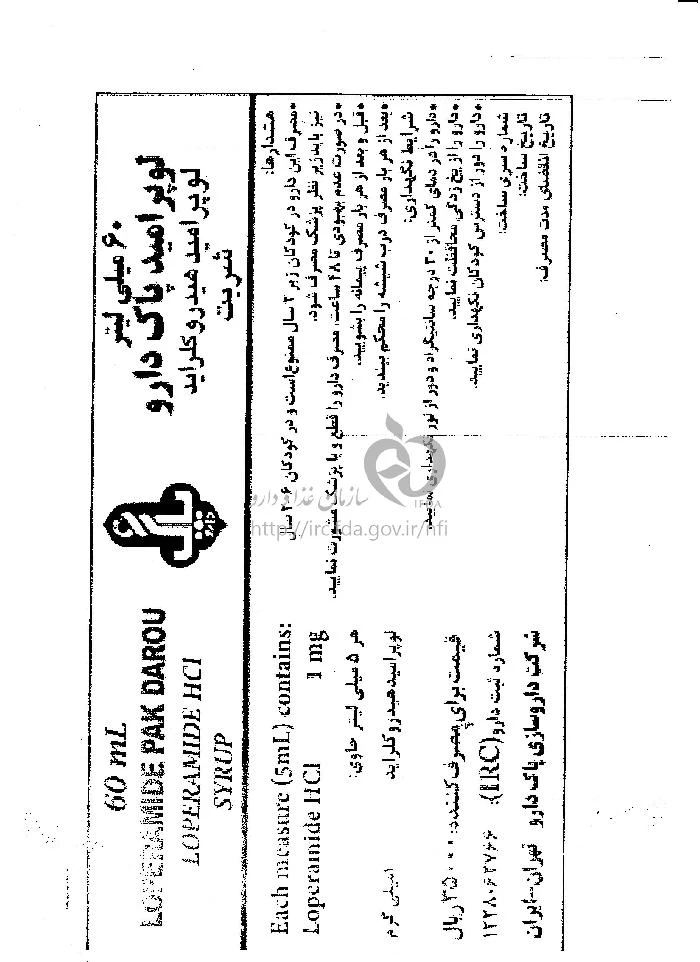 60 mL
LOPERAMIDE PAK DAROU
LOPERAMIDE HCl
SYRUP
۶۰ میلی لیتر
لوپرامید پاک دارو
لوپرامید هیدروکلراید
شربت
Each measure (5mL) contains:
Loperamide HCl 1 mg
هر ۵ میلی لیتر حاوی:
لوپرامید هیدروکلراید ۱میلی گرم
قیمت برای مصرف کننده: ۳۵۰۰۰ ریال
شماره ثبت دارو (IRC): ۱۲۲۸۰۶۲۷۶۶
شرکت داروسازی پاک دارو تهران-ایران
هشدارها:
•مصرف این دارو در کودکان زیر ۲ سال ممنوع است و در کودکان ۶-۲ سال
نیز باید زیر نظر پزشک مصرف شود.
•در صورت عدم بهبودی تا ۴۸ ساعت، مصرف دارو را قطع و با پزشک مشورت نمایید.
•قبل و بعد از هر بار مصرف پیمانه را بشویید.
•بعد از هر بار مصرف درب شیشه را محکم ببندید.
شرایط نگهداری:
•دارو را در دمای کمتر از ۳۰ درجه سانتیگراد و دور از نور نگهداری نمایید.
•دارو را از یخ زدگی محافظت نمایید.
•دارو را دور از دسترس کودکان نگهداری نمایید.
شماره سری ساخت:
تاریخ ساخت:
تاریخ انقضای مدت مصرف:
سازمان غذا و دارو
IFDA
http://irc.fda.gov.ir/nfi